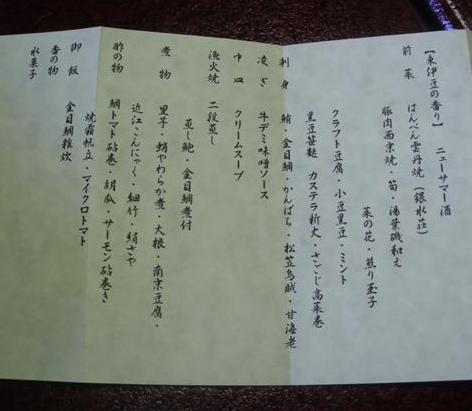 【東伊豆の香り】 ニューサマー酒
前菜 はんぺん雲丹焼(銀水荘)
豚肉西京焼・筍・湯葉磯和え
菜の花・煎り玉子
クラフト豆腐・小豆黒豆・ミント
黒豆笹麩 カステラ新丈・さごじ高菜巻
刺身 鮪・金目鯛・かんぱち・松笠烏賊・甘海老
凌ぎ 牛デミ味噌ソース
中皿 クリームスープ
漁火焼 二段蒸し
蒸し鮑・金目鯛煮付
煮物 里芋・蛸やわらか煮・大根・南京豆腐・
近江こんにゃく・細竹・絹さや
酢の物 鯛トマト砧巻・胡瓜・サーモン砧巻き
焼霜帆立・マイクロトマト
御飯 金目鯛雑炊
香の物
水菓子